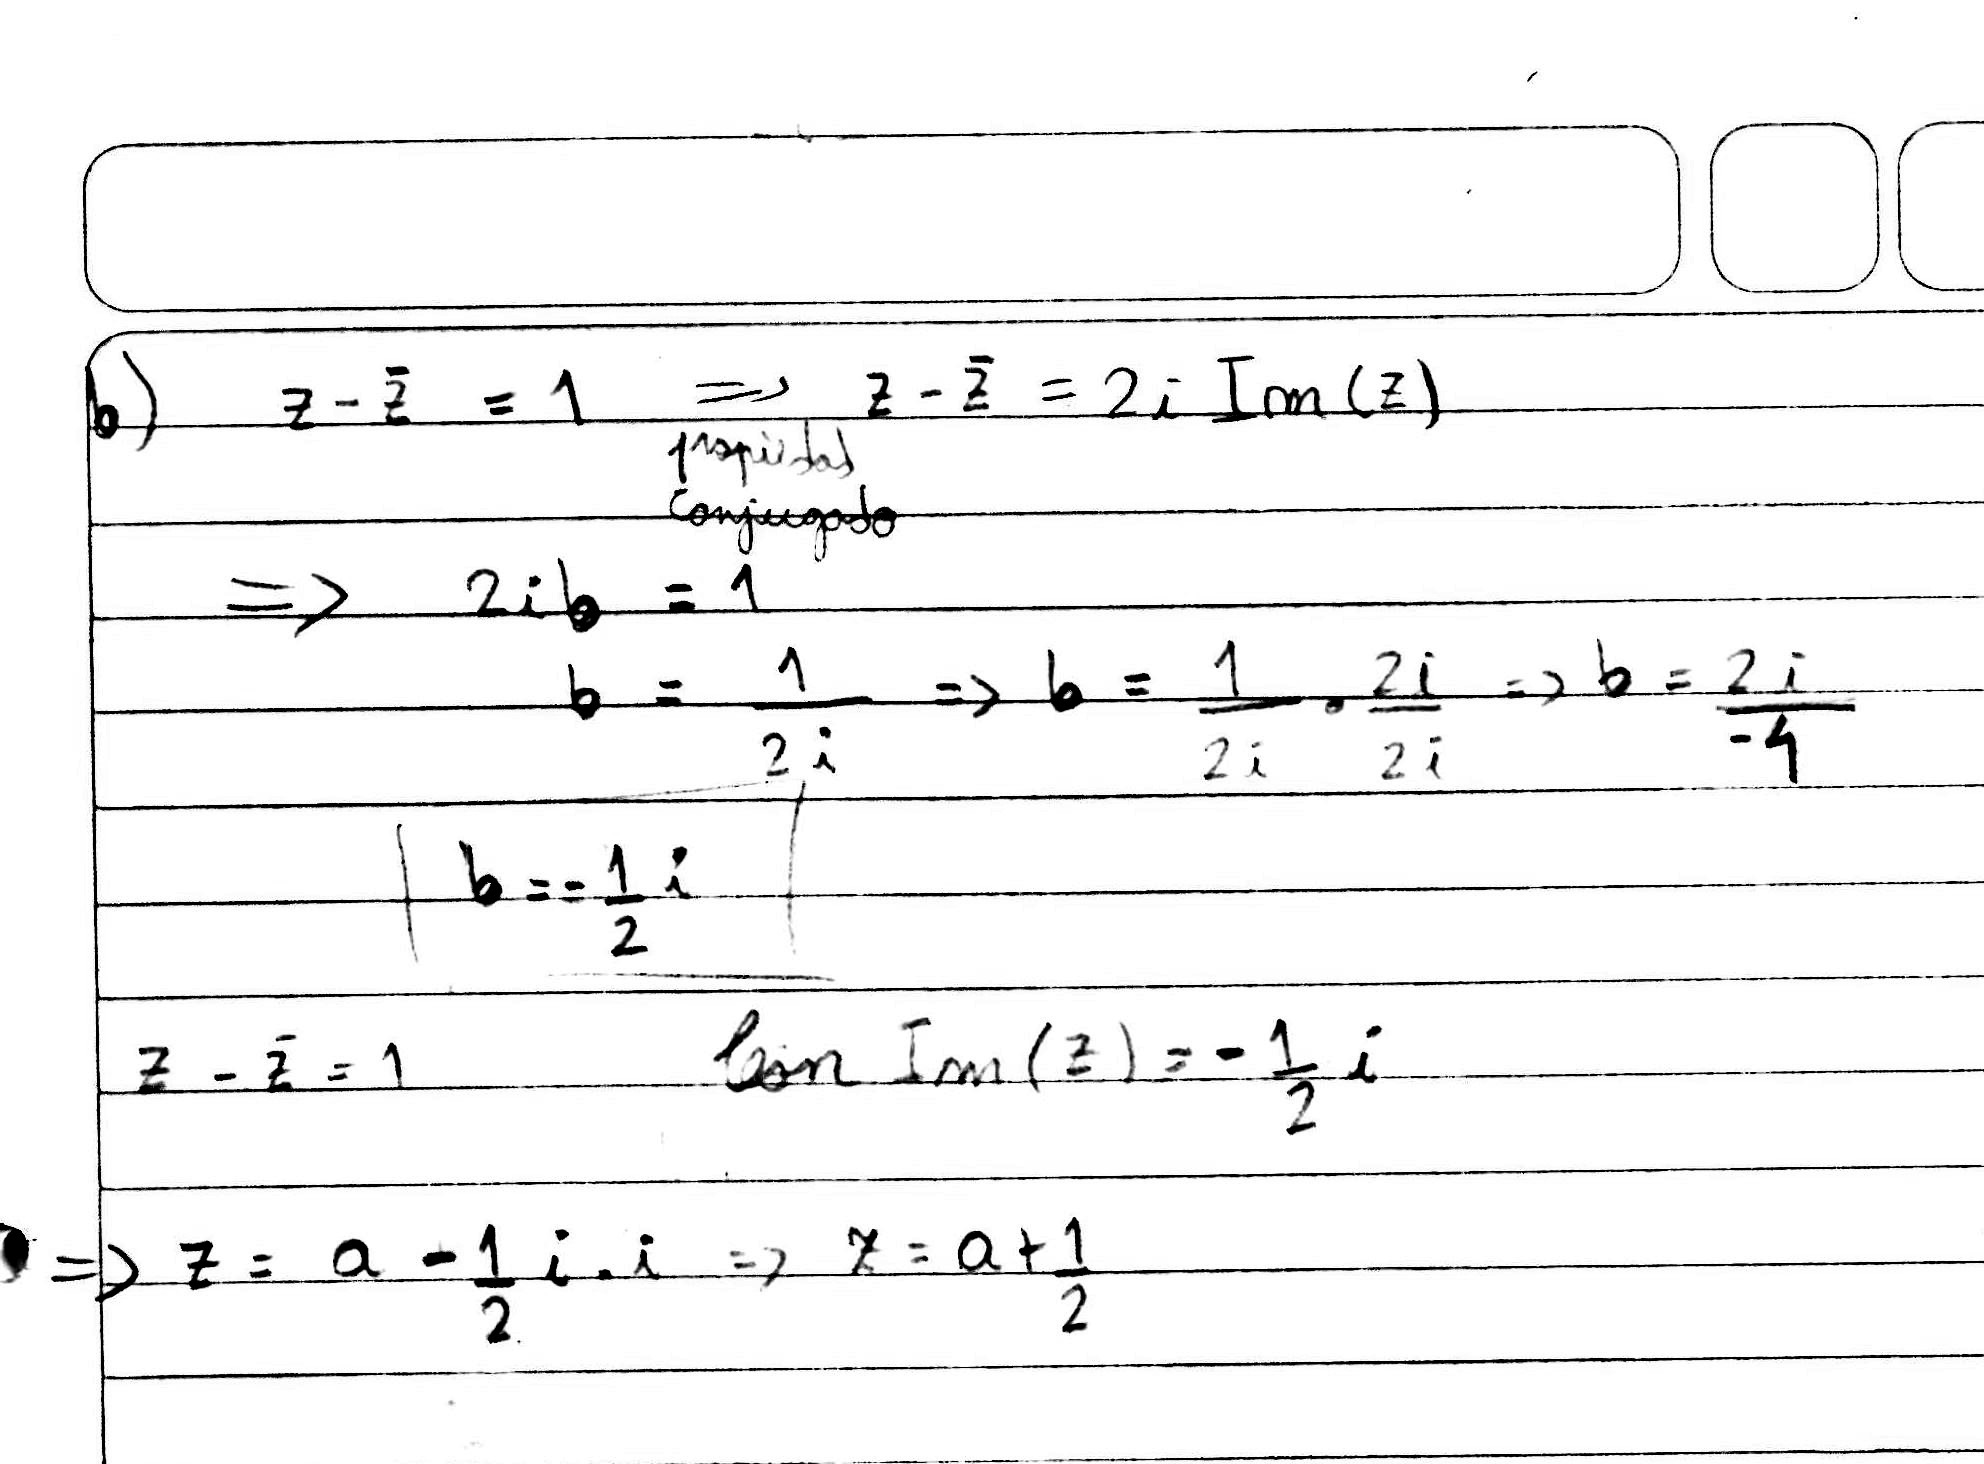 b) z - z̄ = 1 => z - z̄ = 2i Im(z)
propiedad
conjugado
=> 2ib = 1
b = 1/2i => b = 1/2i · 2i/2i => b = 2i/-4
b = -1/2 i
z - z̄ = 1 con Im(z) = -1/2 i
=> z = a - 1/2 i · i => z = a + 1/2